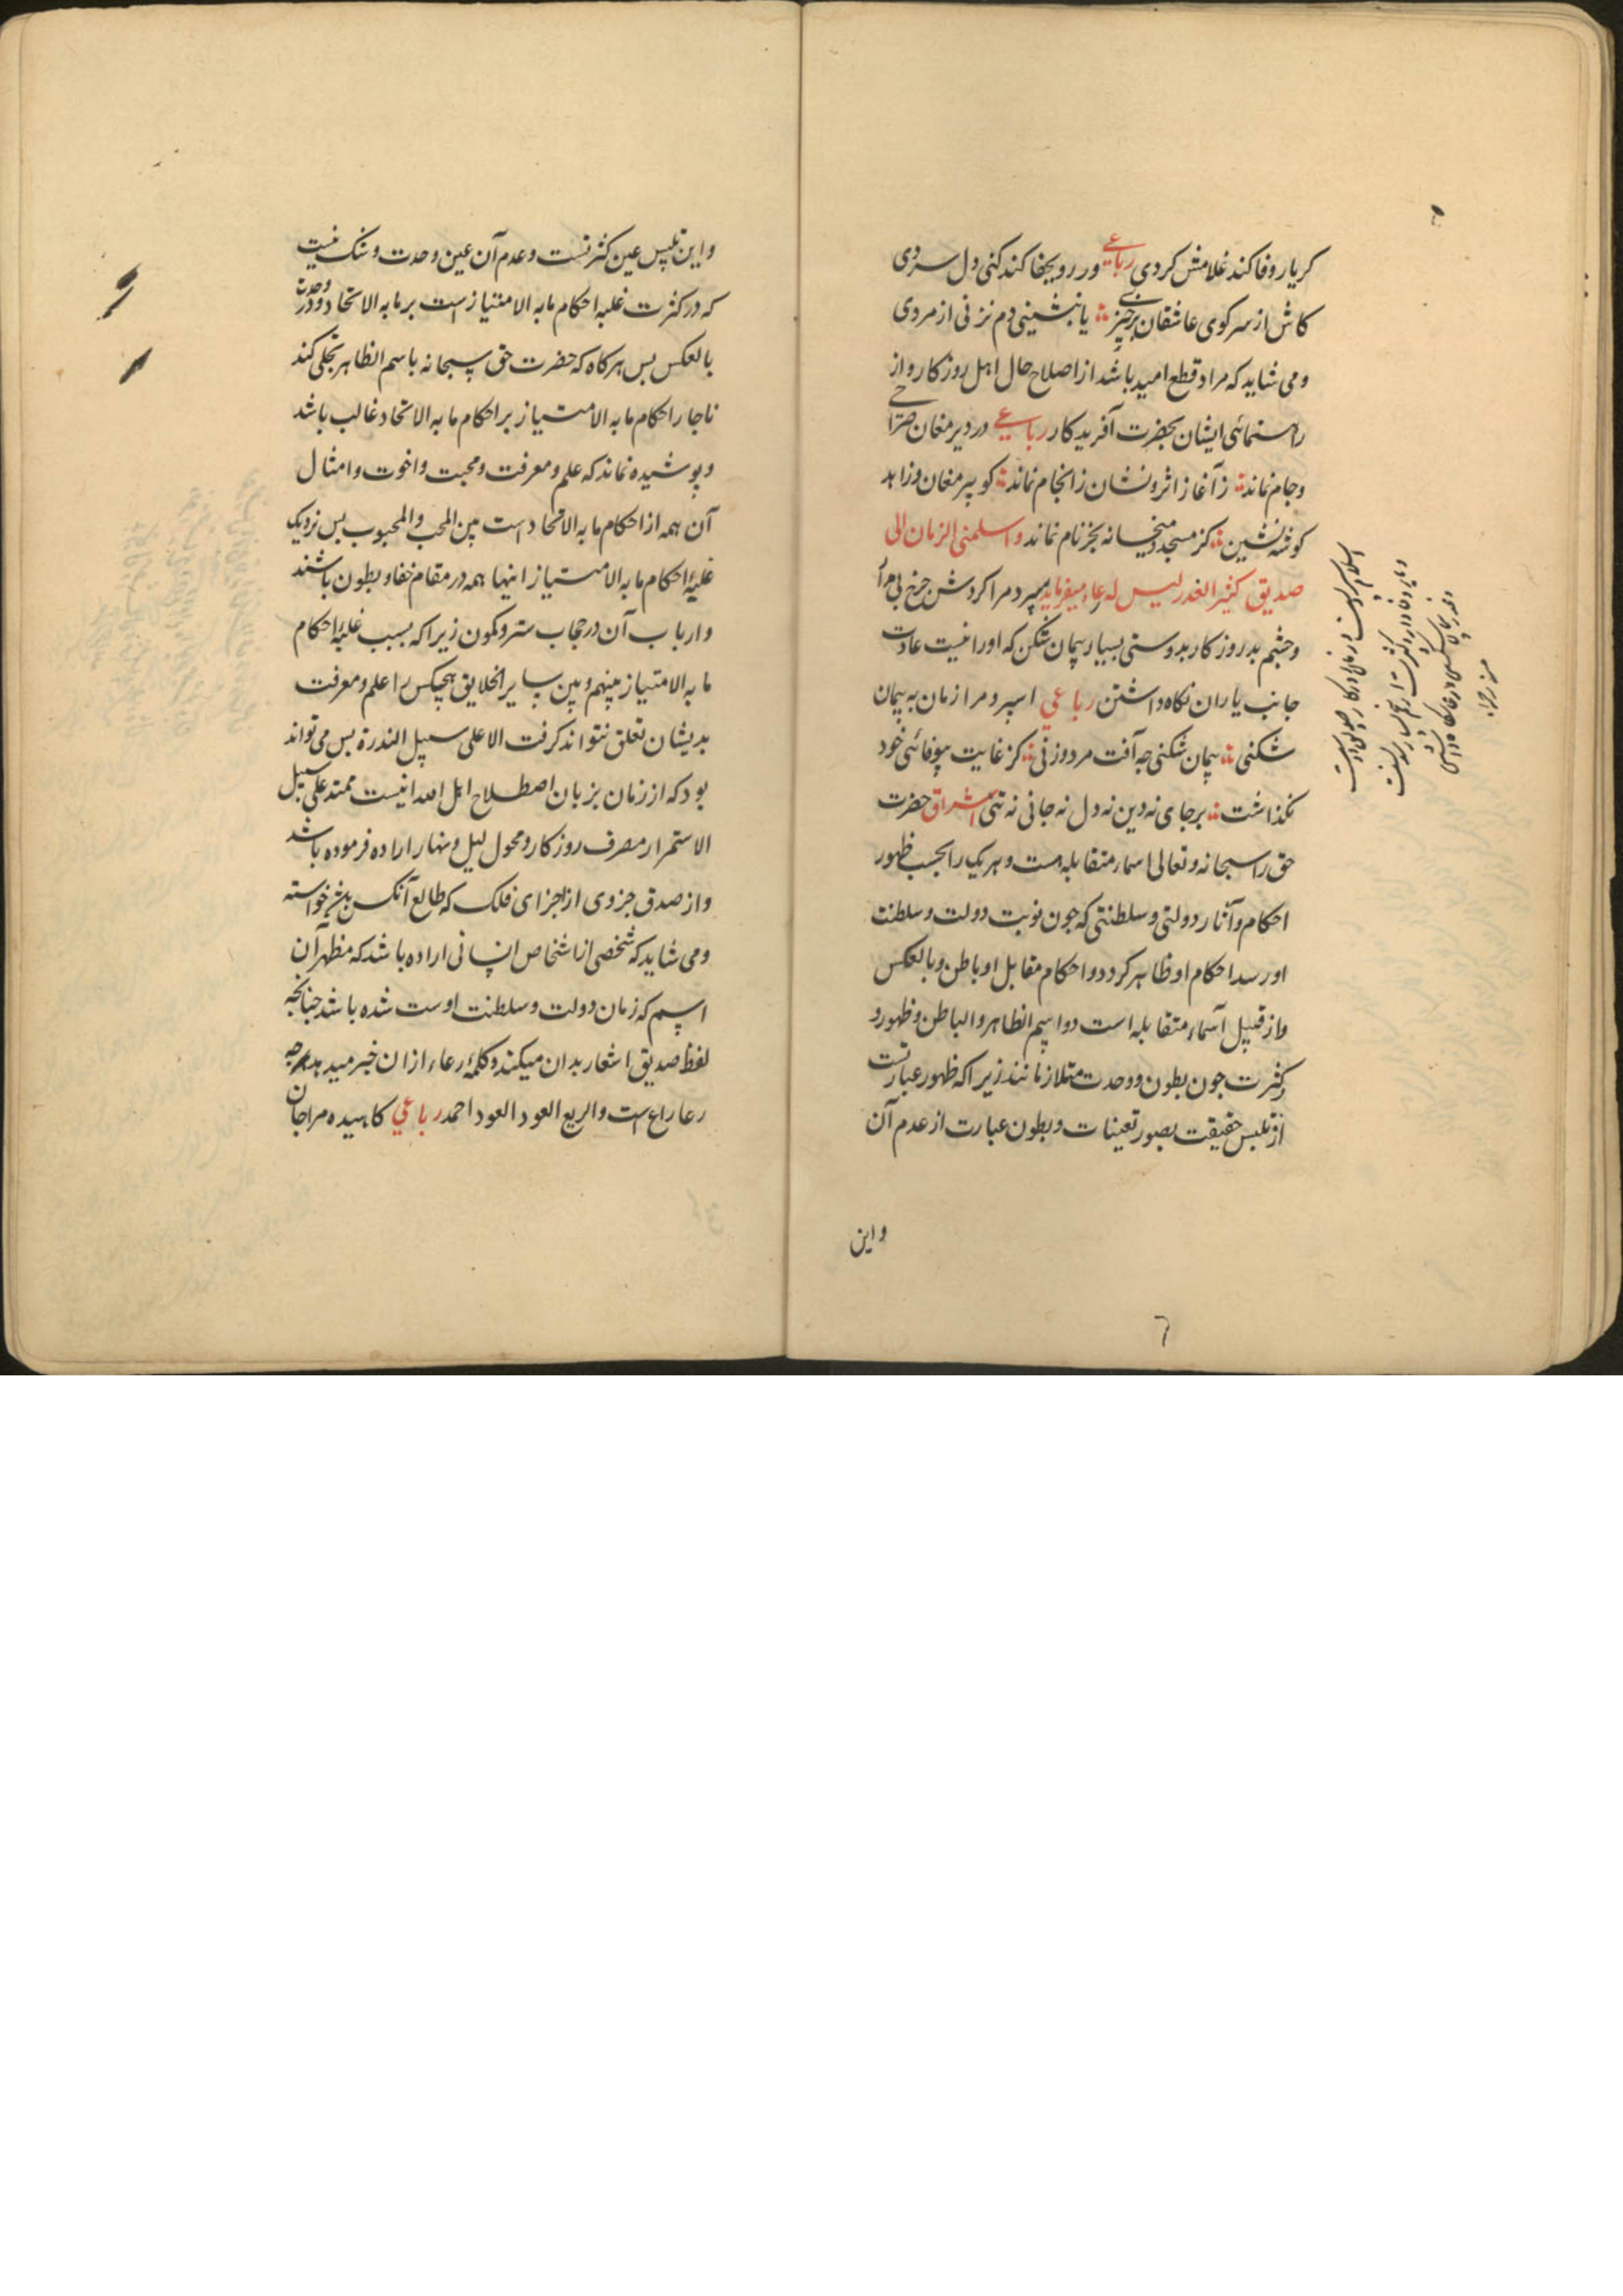 کر یار وفا کند غلامش کردی رباعی ور رو بجفا کند کنی دل سردی
کاش از سر کوی عاشقان برخیزی یا بنشینی و دم نزنی از مردی
و می شاید که مراد قطع امید باشد از اصلاح حال اهل روزکار و از
راهنمائی ایشان بحضرت آفریدکار رباعی در دیر مغان صراحی
و جام نماند ز آغاز اثر و نشان ز انجام نماند کو پیر مغان و زاهد
کوشه نشین کز مسجد و میخانه بجز نام نماند و اسلمنی الزمان الی
صدیق کثیر الغدر لیس له رعاء میفرماید سپرد مرا کردش چرخ بی مدار
و چشم بد روزکار بدوستی بسیار پیمان شکن که او را نیست عادت
جانب یاران نکاه داشتن رباعی اسپرد مرا زمان به پیمان
شکنی پیمان شکنی چه آفت مرد و زنی کز غایت بیوفائی خود
نکذاشت بر جای نه دین نه دل نه جانی نه تنی اشراق حضرت
حق را سبحانه و تعالی اسماء متقابله هست و هر یک را بحسب ظهور
احکام و آثار دولتی و سلطنتی که چون نوبت دولت و سلطنت
او رسد احکام او ظاهر کردد و احکام مقابل او باطن و بالعکس
و از قبیل اسماء متقابله است دو اسم الظاهر و الباطن و ظهور و
کثرت چون بطون و وحدت متلازمانند زیرا که ظهور عبارتست
از تلبس حقیقت بصور تعینات و بطون عبارت از عدم آن
و این
و این تلبس عین کثرتست و عدم آن عین وحدت و شک نیست
که در کثرت غلبه احکام ما به الامتیاز است بر ما به الاتحاد و در وحدت
بالعکس بس هرکاه که حضرت حق سبحانه باسم الظاهر تجلی کند
ناچار احکام ما به الامتیاز بر احکام ما به الاتحاد غالب باشد
و پوشیده نماند که علم و معرفت و محبت و اخوت و امثال
آن همه از احکام ما به الاتحاد است بین المحب و المحبوب بس نزدیک
غلبهٔ احکام ما به الامتیاز اینها همه در مقام خفا و بطون باشند
و ارباب آن در حجاب ستر و کمون زیرا که بسبب غلبهٔ احکام
ما به الامتیاز بینهم و بین سایر الخلایق هیچکس را علم و معرفت
بدیشان تعلق نتواند کرفت الا علی سبیل الندرة بس می تواند
بود که از زمان بزبان اصطلاح اهل الله انیست ممتد علی سبیل
الاستمرار مصرف روزکار و محول لیل و نهار اراده فرموده باشد
و از صدق جزوی از اجزای فلک که طالع آنکس بدش خواسته
و می شاید که شخصی از اشخاص انسانی اراده باشد که مظهر آن
اسم که زمان دولت و سلطنت اوست شده باشد چنانچه
لفظ صدیق اشعار بدان میکند و کلمهٔ رعاء از ان خبر میدهد چه
رعا راع است و الریع العود العود احمد رباعی کاهیده مرا جان